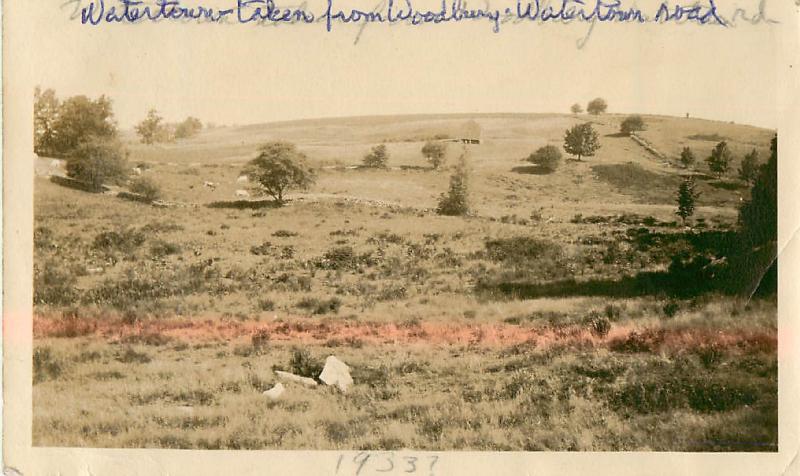 Watertown - taken from Woodbury - Watertown road
1933?